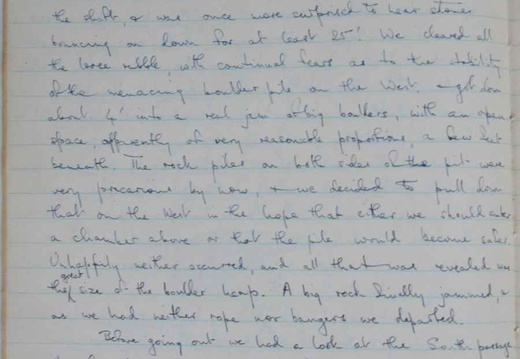 the shaft, & was once more surprised to hear stones
bouncing on down for at least 25'! We cleared all
the loose rubble, with continual fears as to the stability
of the menacing boulder pile on the West, & got down
about 4' into a real jam of big boulders, with an open
space, apparently of very reasonable proportions, a few feet
beneath. The rock piles on both sides of the pit were
very precarious by now, & we decided to pull down
that on the West in the hope that either we should enter
a chamber above or that the pile would become safer.
Unhappily neither occurred, and all that was revealed was
the great size of the boulder heap. A big rock finally jammed, &
as we had neither rope nor bangers we departed.
Before going out we had a look at the South passage